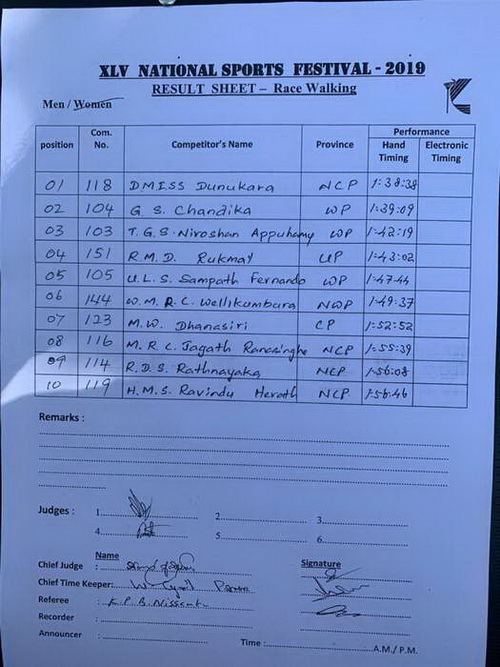 XLV NATIONAL SPORTS FESTIVAL - 2019
RESULT SHEET – Race Walking
Men / Women
position Com. No. Competitor's Name Province Performance Hand Timing Electronic Timing
01 118 DMISS Dunukara NCP 1:38:38
02 104 G. S. Chandika WP 1:39:09
03 103 T.G.S. Niroshan Appuhamy WP 1:42:19
04 151 R.M.D. Rukmal UP 1:43:02
05 105 U.L.S. Sampath Fernando WP 1:47:44
06 144 W.M.R.C. Wellikumbura NWP 1:49:37
07 123 M.W. Dhanasiri CP 1:52:52
08 116 M.R.C. Jagath Ranasinghe NCP 1:55:39
09 114 R.D.S. Rathnayaka NCP 1:56:08
10 119 H.M.S. Ravindu Herath NCP 1:56:46
Remarks :
Judges : 1. 2. 3.
4. 5. 6.
Name Signature
Chief Judge :
Chief Time Keeper:
Referee : K.P.B.
Recorder :
Announcer :
Time : A.M./ P.M.